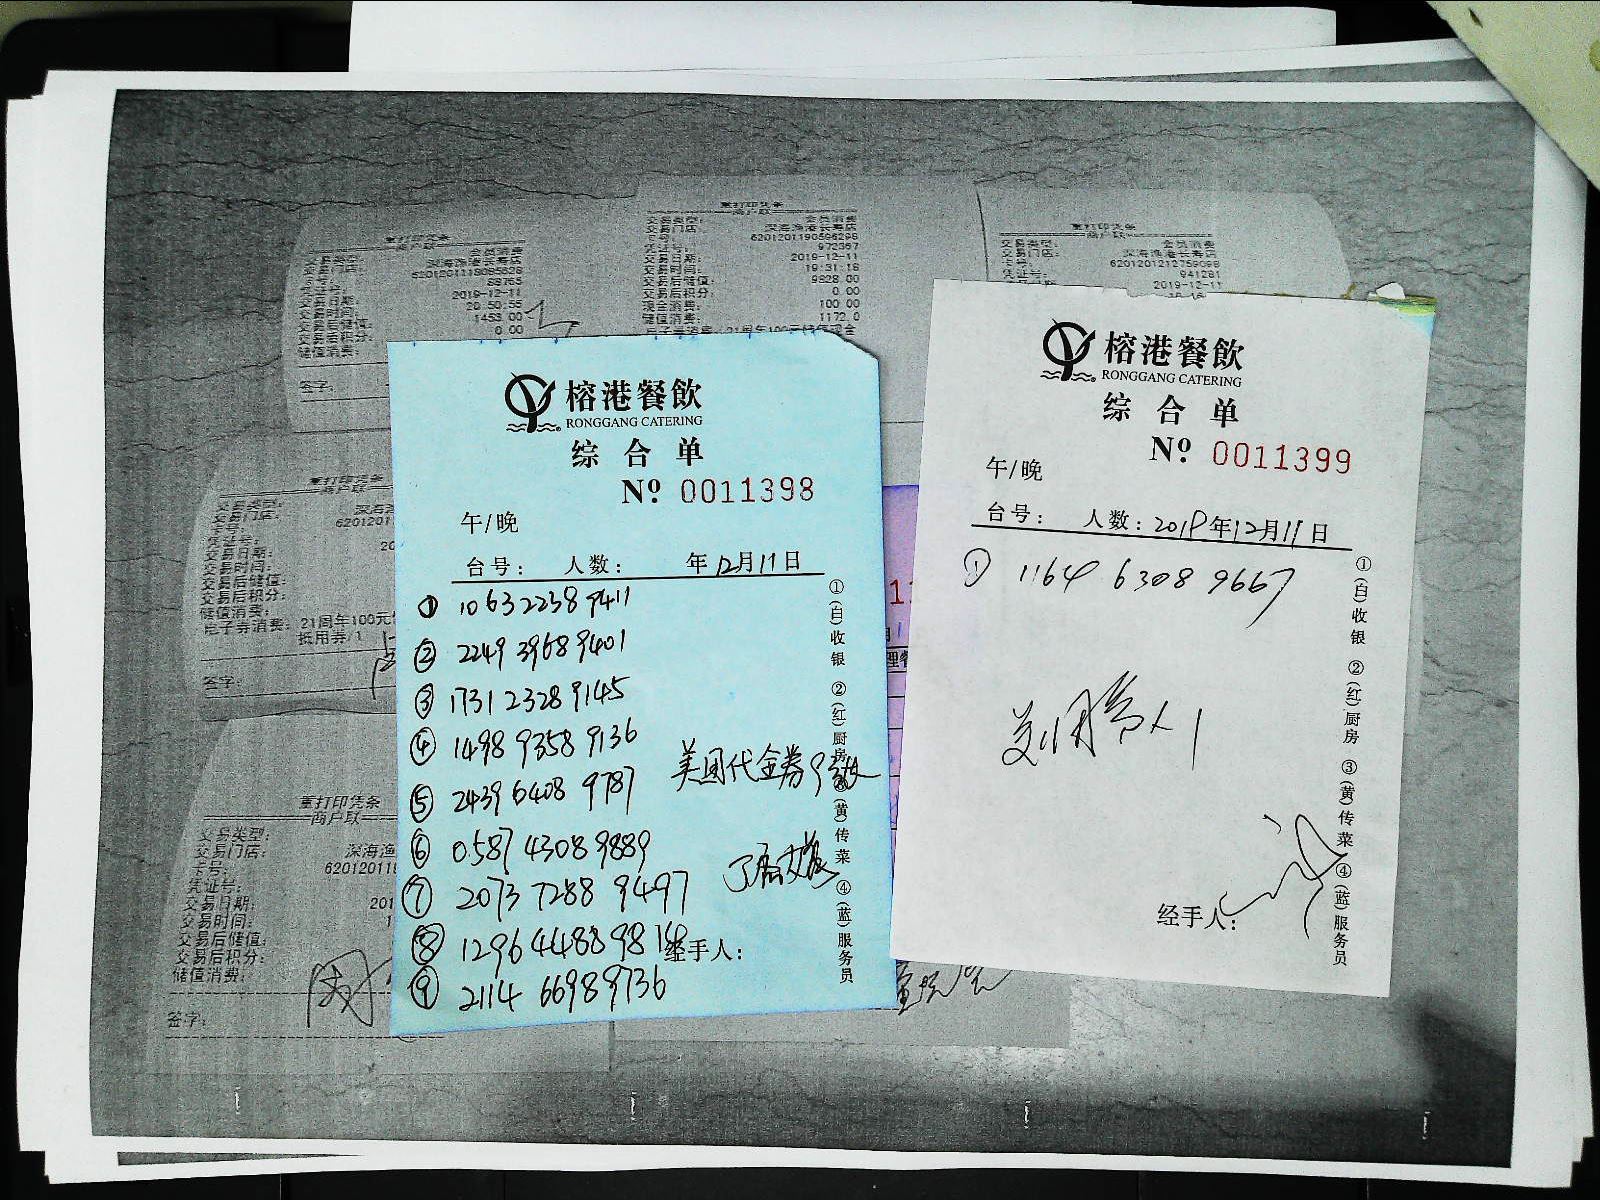 重打印凭条
商户联
交易类型: 会员消费
交易门店: 深海渔港长寿店
卡号: 6201201118085828
88765
交易日期: 2019-12-11
交易时间: 20:50:55
交易后储值: 1453.00
交易后积分: 0.00
储值消费:
签字:
重打印凭条
商户联
交易类型: 会员消费
交易门店: 深海渔港长寿店
卡号: 6201201190596298
凭证号: 972367
交易日期: 2019-12-11
交易时间: 19:31:18
交易后储值: 9828.00
交易后积分: 0.00
现金消费: 100.00
储值消费: 1172.0
重打印凭条
商户联
交易类型: 会员消费
交易门店: 深海渔港长寿店
卡号: 6201201212759098
凭证号: 941281
2019-12-11
重打印凭条
商户联
交易类型:
交易门店: 深海渔
卡号: 6201201
凭证号:
交易日期: 20
交易时间:
交易后储值:
交易后积分:
储值消费:
电子券消费: 21周年100元
抵用券/1
签字:
重打印凭条
商户联
交易类型:
交易门店: 深海渔
卡号: 620120111
凭证号:
交易日期: 201
交易时间: 1
交易后储值:
交易后积分:
储值消费:
签字:
榕港餐飲
RONGGANG CATERING
综合单
Nº 0011398
午/晚
台号: 人数: 年12月11日
① 1063 2238 9411
② 2249 3968 9401
③ 1731 2328 9145
④ 1498 9358 9136
⑤ 2439 6408 9787
⑥ 0587 4308 9889
⑦ 2073 7288 9497
⑧ 1296 4488 98
⑨ 2114 6698 9736
美团代金券9张
经手人:
①(白)收银 ②(红)厨房 ③(黄)传菜 ④(蓝)服务员
榕港餐飲
RONGGANG CATERING
综合单
Nº 0011399
午/晚
台号: 人数: 2019年12月11日
① 1164 6308 9667
经手人:
①(白)收银 ②(红)厨房 ③(黄)传菜 ④(蓝)服务员